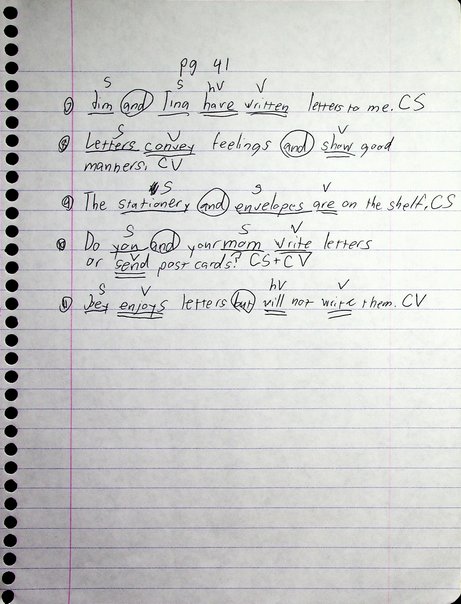 pg 41
S S hV V
7 Jim and Tina have written letters to me. CS
S V V
8 Letters convey feelings and show good
manners. CV
S S V
9 The stationery and envelopes are on the shelf. CS
S S V
10 Do you and your mom write letters
V
or send post cards? CS+CV
S V hV V
11 Joey enjoys letters but will not write them. CV